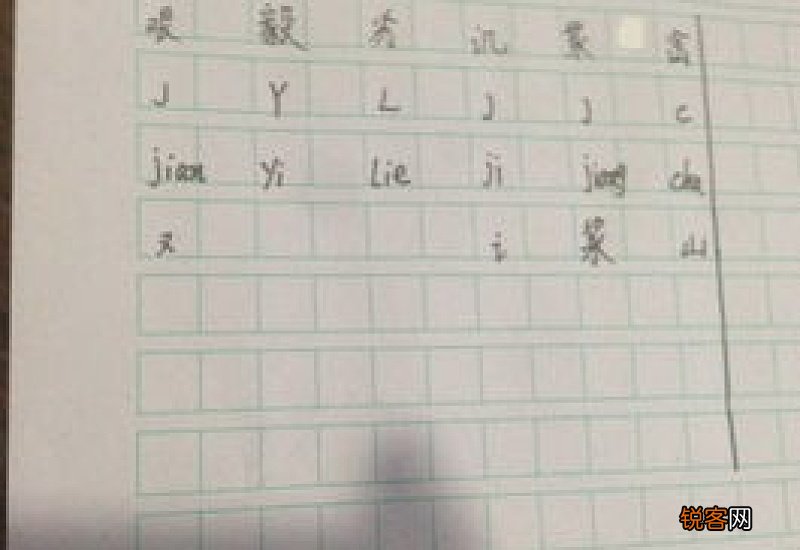 艰 毅 劣 讥 浆
J Y L J J C
jian yi Lie ji jiang chu
又 讠 山
锐客网